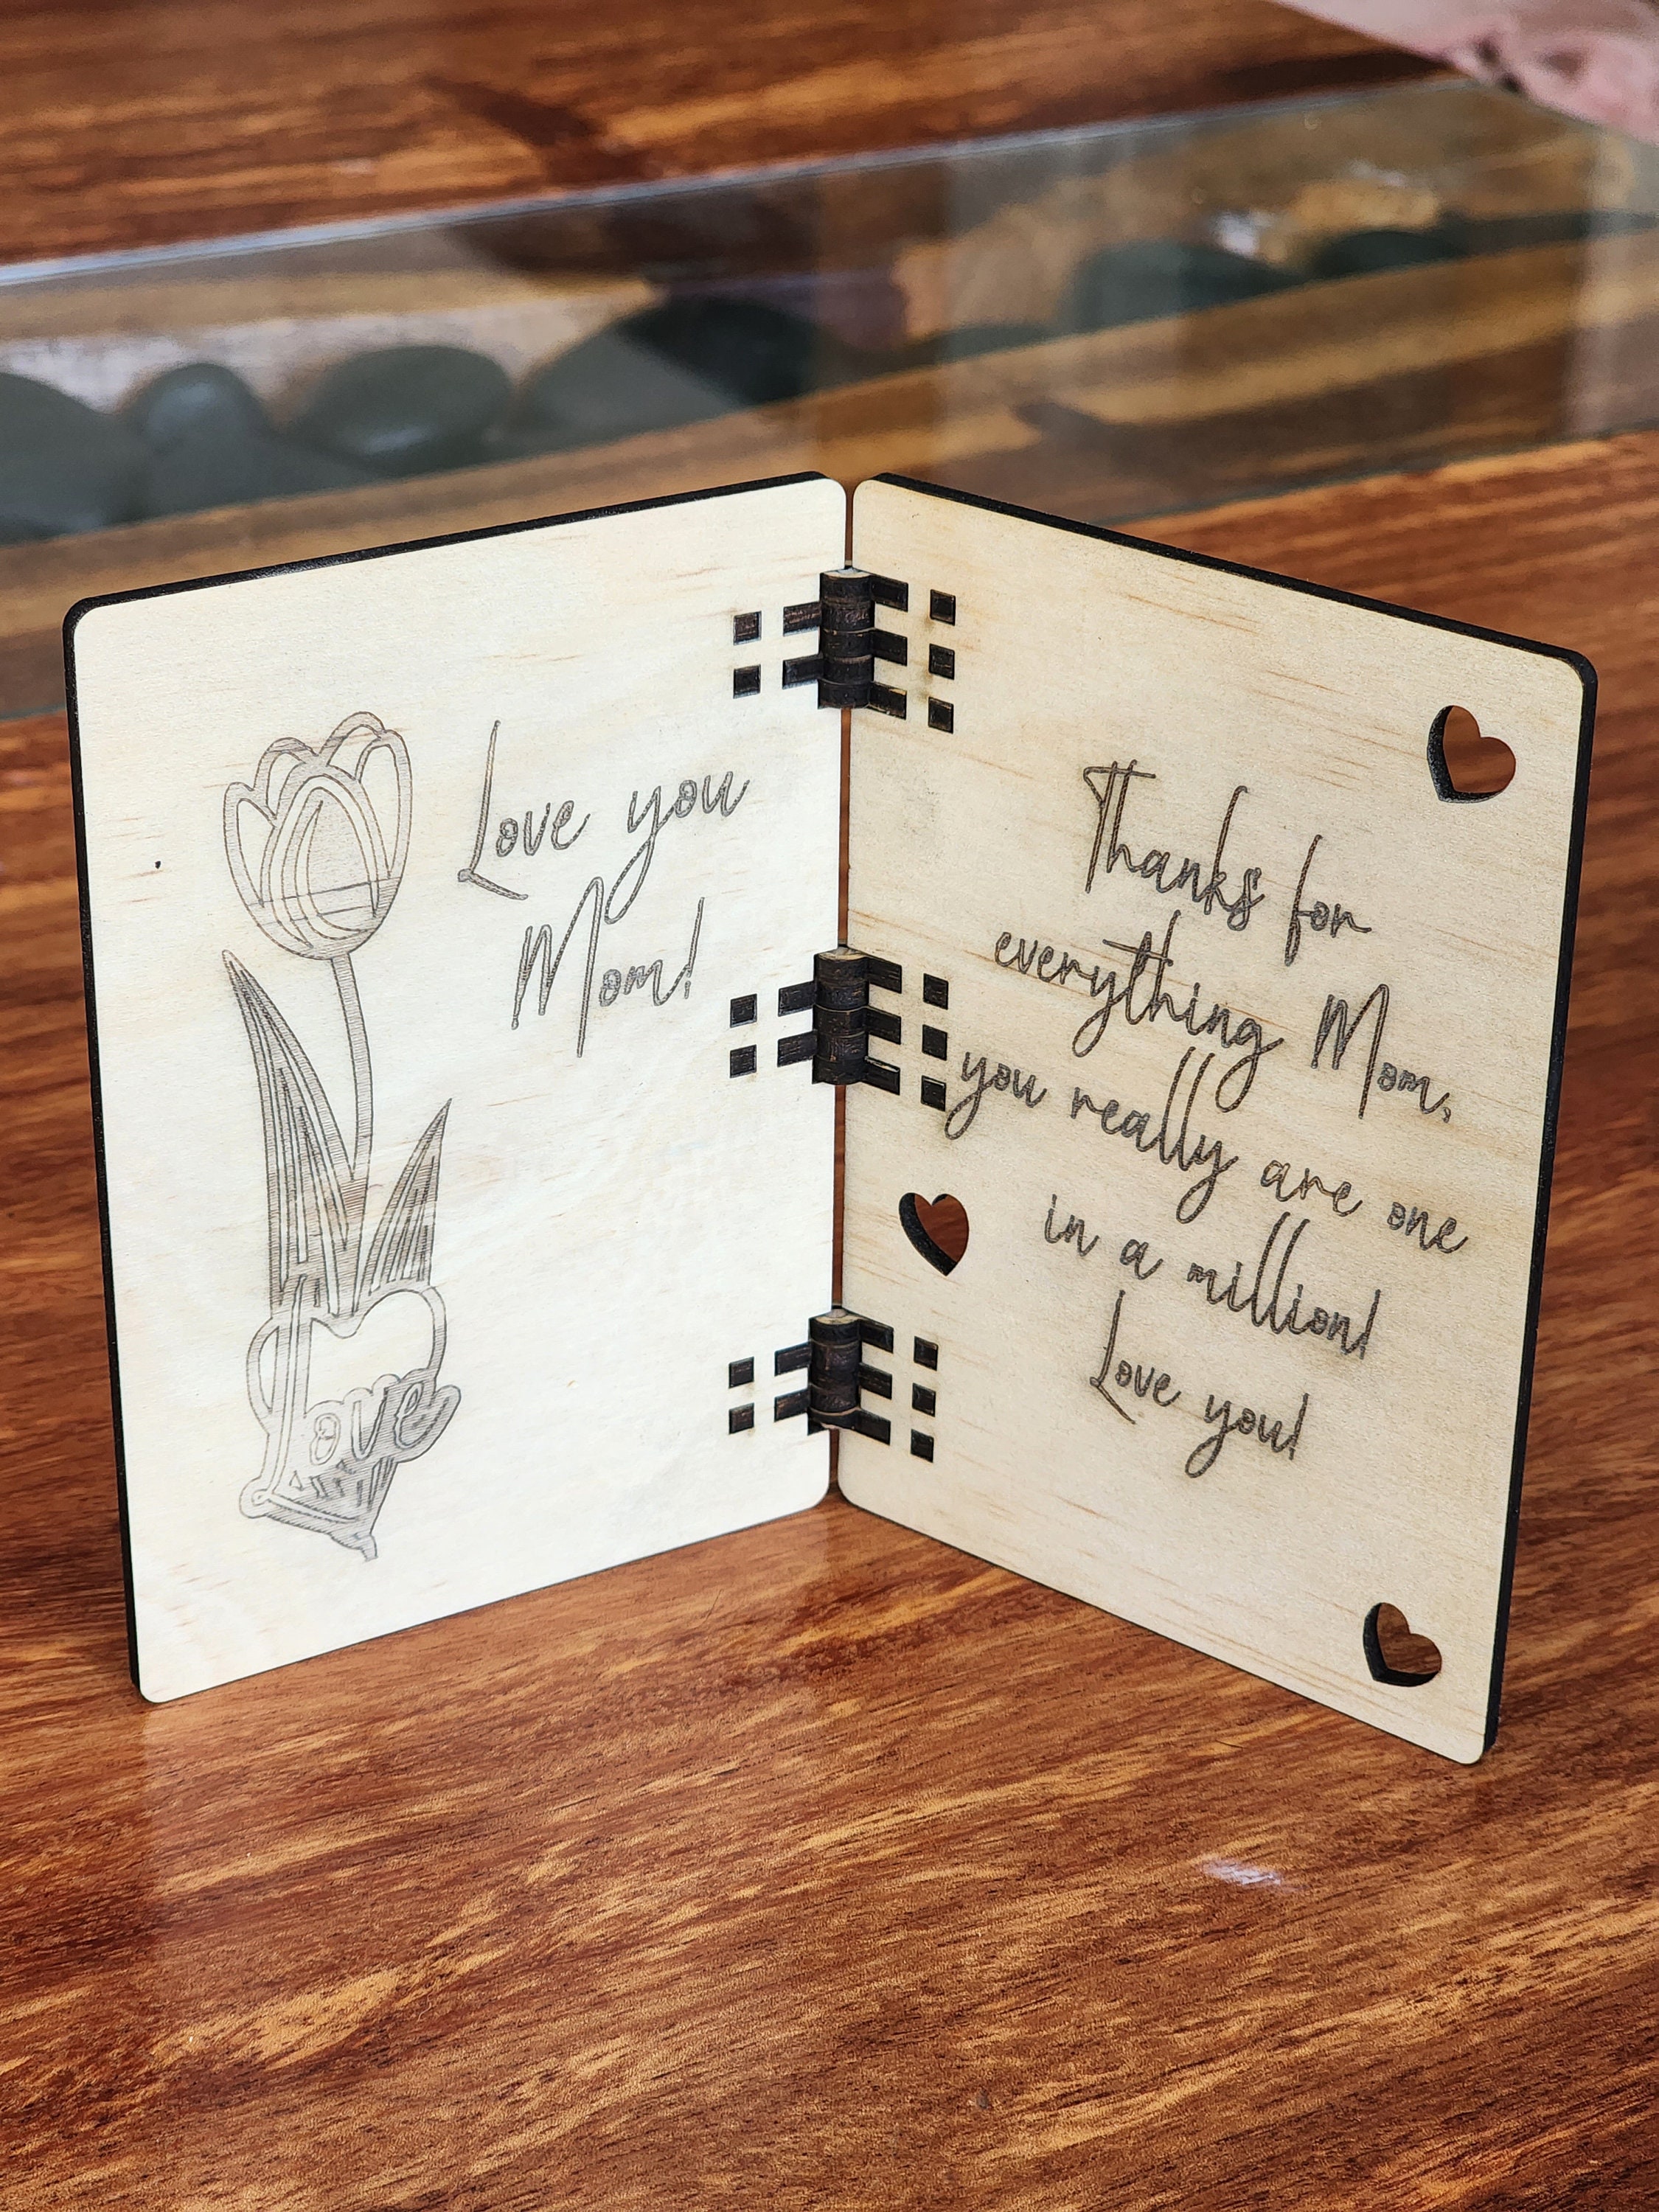 Love you
Mom!
love
Thanks for
everything Mom,
you really are one
in a million!
Love you!